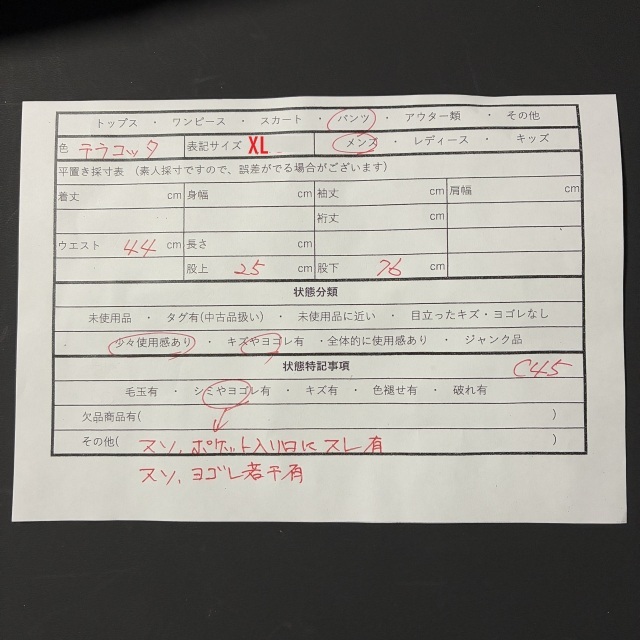 トップス ・ ワンピース ・ スカート ・ パンツ ・ アウター類 ・ その他
色 テラコッタ 表記サイズ XL メンズ ・ レディース ・ キッズ
平置き採寸表 (素人採寸ですので、誤差がでる場合がございます)
着丈 cm 身幅 cm 袖丈 cm 肩幅 cm
裄丈 cm
ウエスト 44 cm 長さ cm
股上 25 cm 股下 76 cm
状態分類
未使用品 ・ タグ有(中古品扱い) ・ 未使用品に近い ・ 目立ったキズ・ヨゴレなし
少々使用感あり ・ キズやヨゴレ有 ・全体的に使用感あり ・ ジャンク品
状態特記事項 C45
毛玉有 ・ シミやヨゴレ有 ・ キズ有 ・ 色褪せ有 ・ 破れ有
欠品商品有( )
その他( スソ、ポケット入り口にスレ有 )
スソ、ヨゴレ若干有